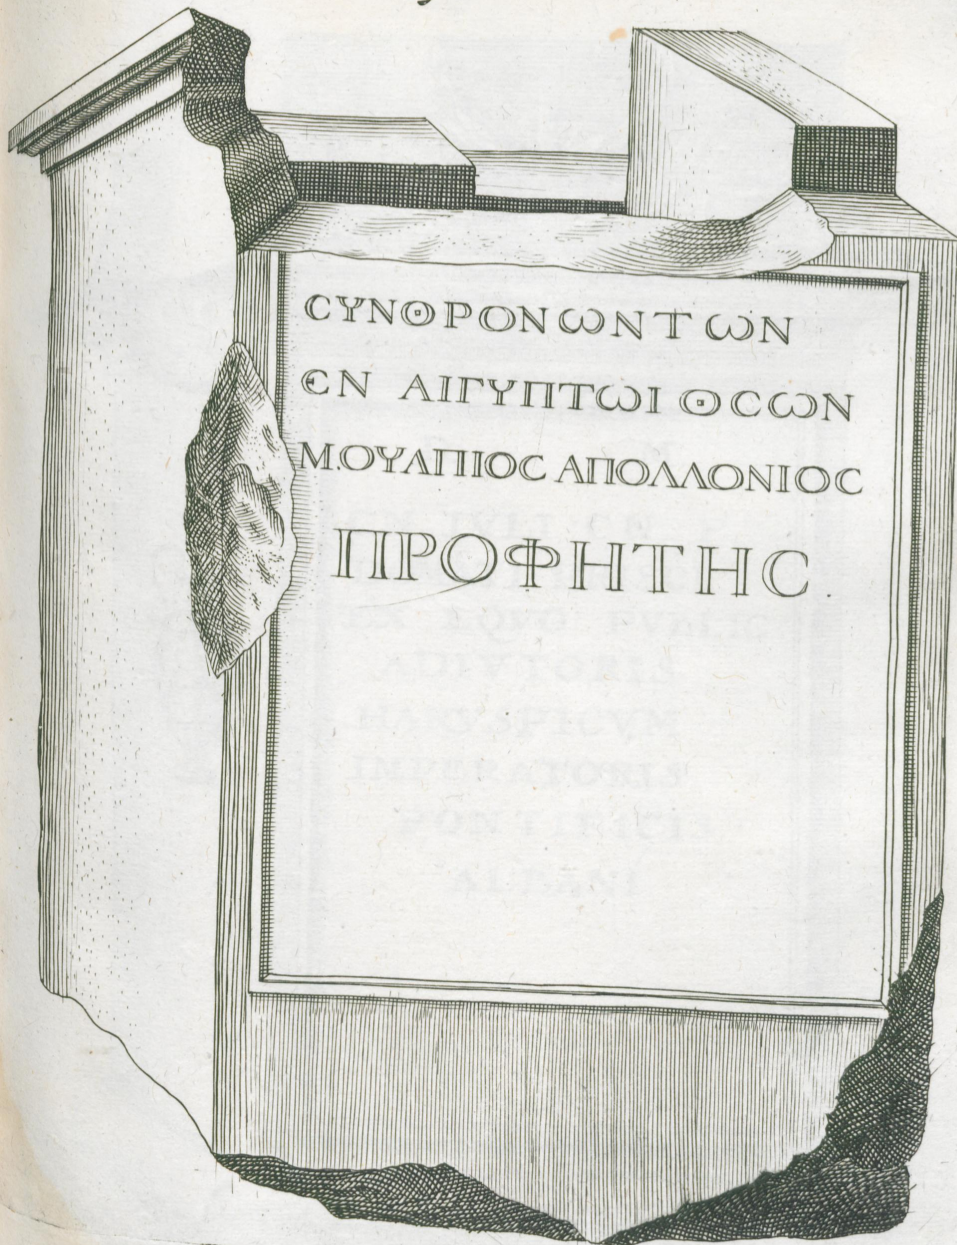 ϹΥΝΘΡΟΝΩΝΤΩΝ
ЄΝ ΑΙΓΥΠΤΩΙ ΘϹΩΝ
Μ.ΟΥΛΠΙΟϹ ΑΠΟΛΛΟΝΙΟϹ
ΠΡΟΦΗΤΗϹ